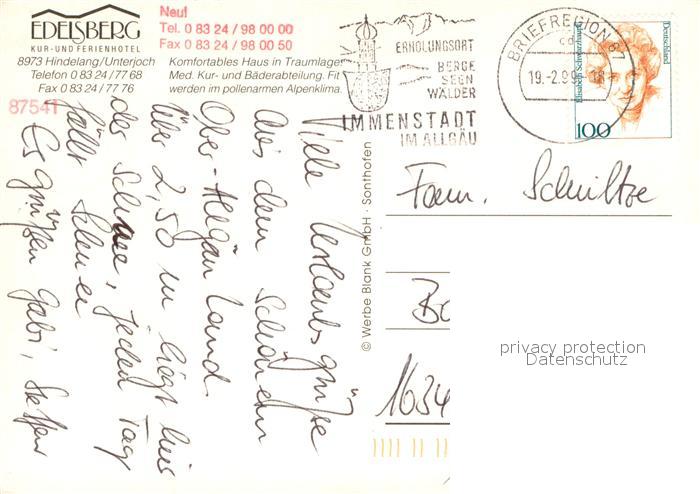 EDELSBERG
KUR- UND FERIENHOTEL
8973 Hindelang/Unterjoch
Telefon 0 83 24 / 77 68
Fax 0 83 24 / 77 76
87541
Neu!
Tel. 0 83 24 / 98 00 00
Fax 0 83 24 / 98 00 50
Komfortables Haus in Traumlage
Med. Kur- und Bäderabteilung. Fit
werden im pollenarmen Alpenklima.
ERHOLUNGSORT
BERGE
SEEN
WÄLDER
IMMENSTADT
IM ALLGÄU
BRIEFREGION 87
cd
19.-2.99
18
Elisabeth Schwarzhaupt
Deutschland
100
Viele Urlaubsgrüße
aus dem Schönen
Ober-Allgäu Land.
Über 2,50 m liegt hier
der Schnee, jeden Tag
fällt Schnee
Es grüßen Gabi, Steffen
© Werbe Blank GmbH · Sonthofen
Fam. Schultze
1634
privacy protection
Datenschutz